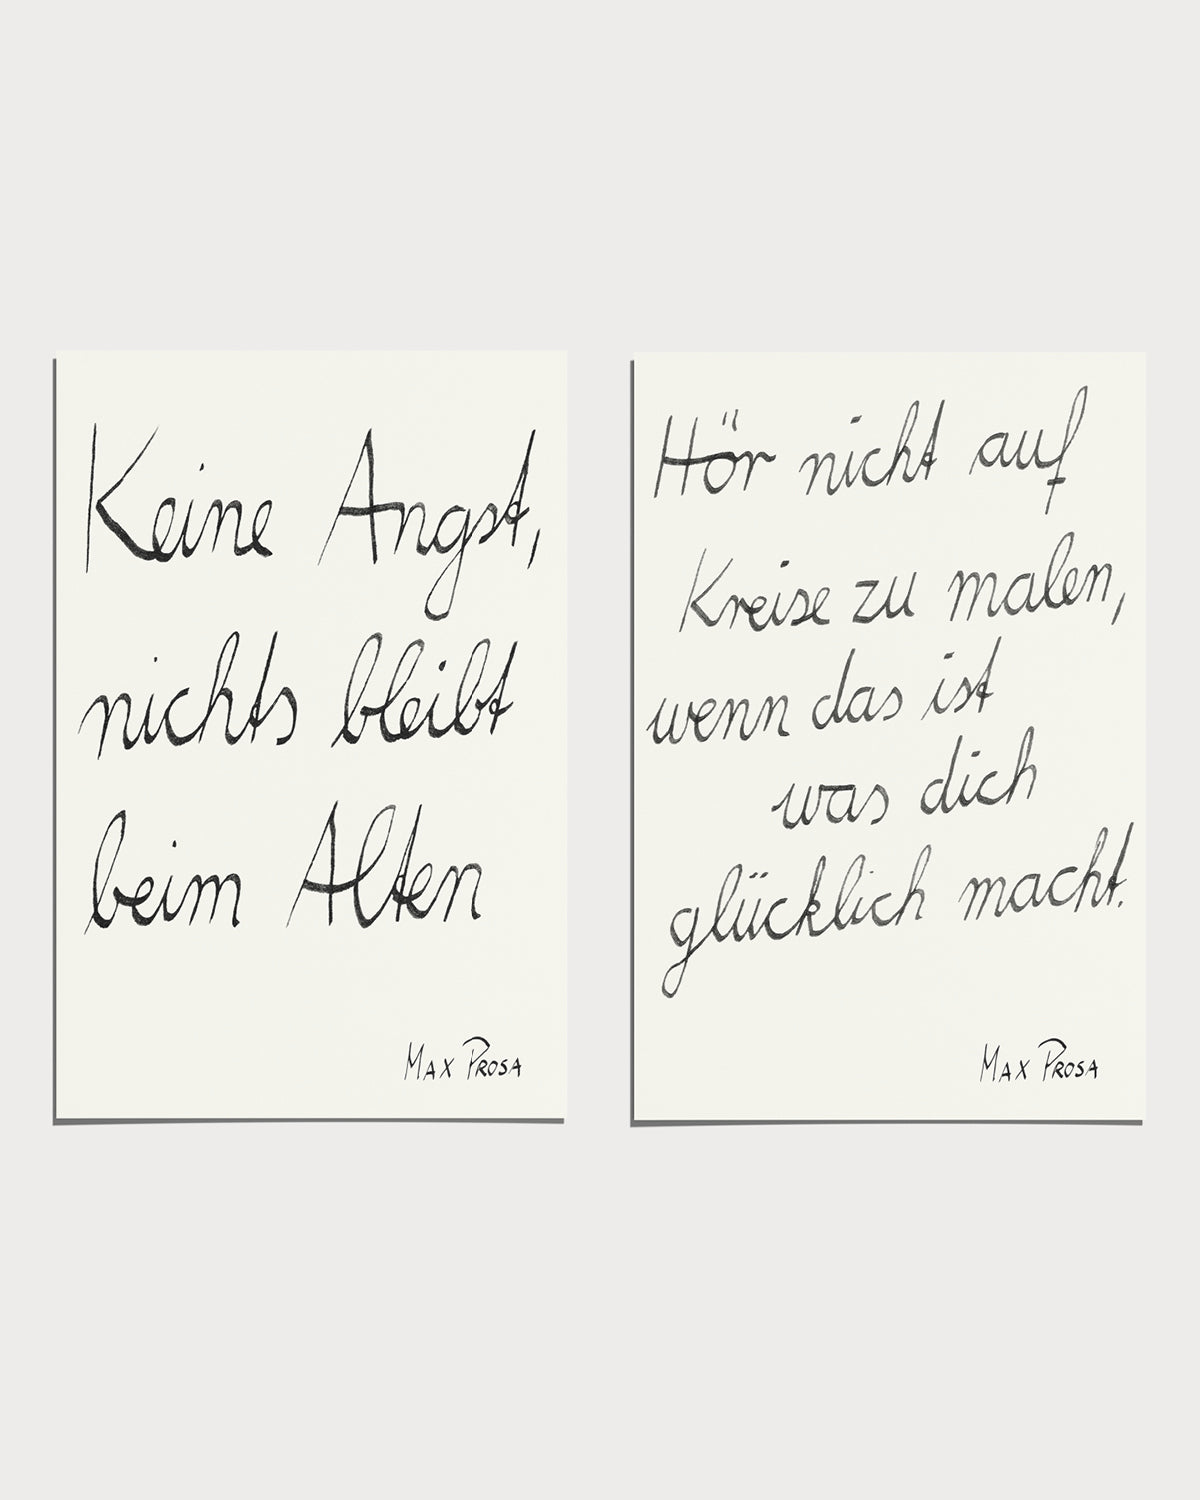 Keine Angst,
nichts bleibt
beim Alten
MAX PROSA
Hör nicht auf
Kreise zu malen,
wenn das ist
was dich
glücklich macht.
MAX PROSA